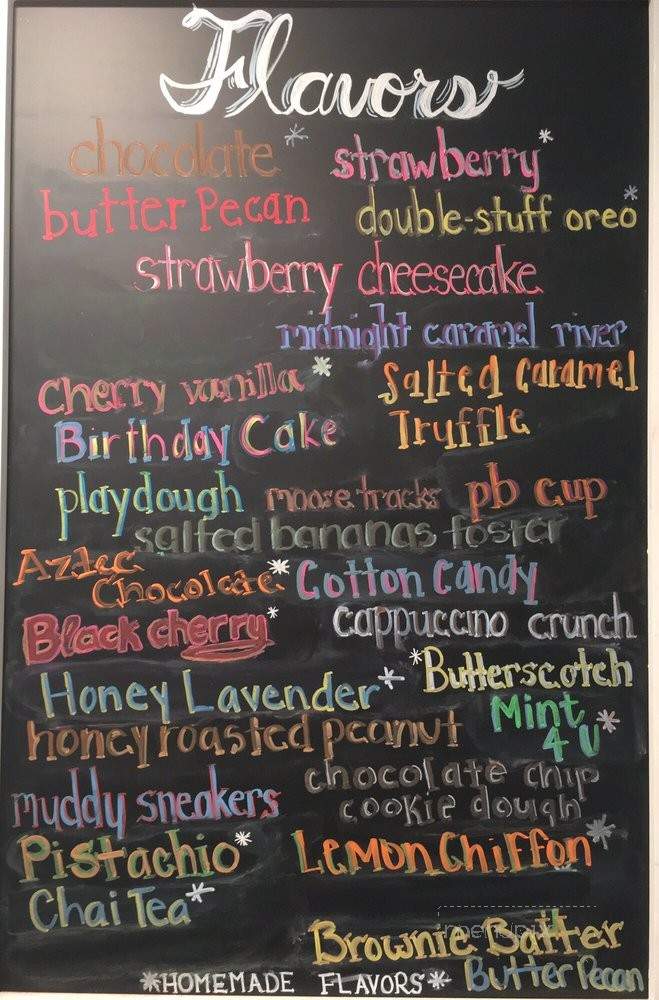 Flavors
chocolate * strawberry *
butter Pecan double-stuff oreo *
strawberry cheesecake
midnight caramel river
Cherry vanilla * Salted Caramel
Birthday Cake Truffle
playdough moose tracks pb cup
salted bananas foster
Aztec
Chocolate * Cotton Candy
Black cherry * cappuccino crunch
Honey Lavender * *Butterscotch
honey roasted peanut Mint
4 U *
muddy sneakers chocolate chip
cookie dough
Pistachio * Lemon Chiffon *
Chai Tea *
Brownie Batter
*HOMEMADE FLAVORS* Butter Pecan